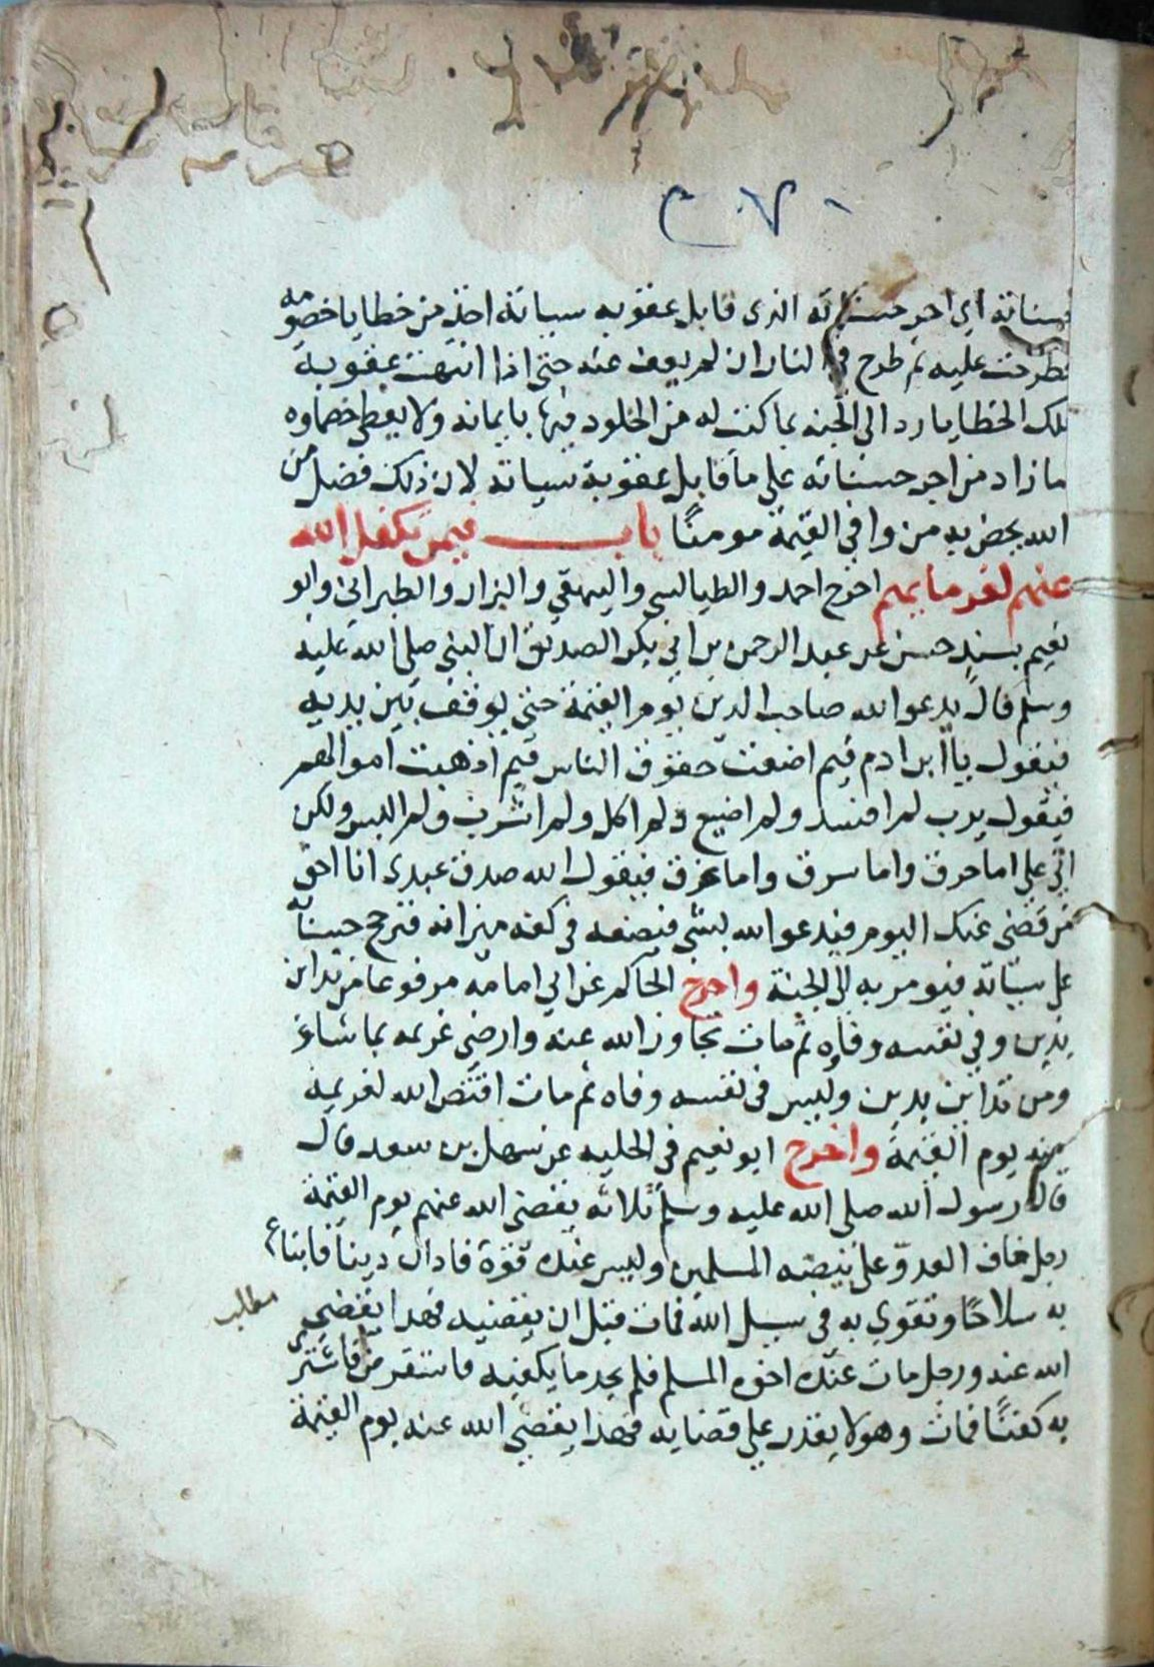 حسناته اي اجر حسناته الذى قابل عقوبه سياته اخذ من خطايا خصومه
فطرحت عليه ثم طرح في النار ان لم يعف عنه حتى اذا انتهت عقوبة
تلك الخطايا رد الي الجنه بما كتب له من الخلود فيها بايمانه ولا يعطي خصماوه
ما زاد من اجر حسناته علي ما قابل عقوبة سياته لان ذلك فضل من
الله يخص به من وافي القيمة مومنًا باب فيمن تكفل الله
عنهم لغرمايهم اخرج احمد والطيالسي والبيهقي والبزار والطبراني وابو
نعيم بسند حسن عن عبد الرحمن بن ابي بكر الصديق ان النبي صلي الله عليه
وسلم قال يدعو الله صاحب الدين يوم القيمة حتي يوقف بين يديه
فيقول ياابن ادم فيم اضعت حقوق الناس فيم اذهبت اموالهم
فيقول يرب لم افسد ولم اضيع ولم اكل ولم اشرب ولم البس ولكن
اتي علي اما حرق واما سرق واما غرق فيقول الله صدق عبدى انا احق
من قضي عنك اليوم فيدعو الله بشي فيضعه في كفه ميزانه فترجح حسناته
على سياته فيومر به الي الجنة واخرج الحاكم عن ابي امامه مرفوعا من تداين
بدين وفي نفسه وفاه ثم مات تجاوز الله عنه وارضي غريمه بما شاء
ومن تداين بدين وليس في نفسه وفاه ثم مات اقتص الله لغريمه
منه يوم القيمة واخرج ابو نعيم في الحليه عن سهل بن سعد قال
قال رسول الله صلى الله عليه وسلم ثلاثه يقضي الله عنهم يوم القيمة
رجل خاف العدوّ على بيضه المسلمين وليس عنده قوة فادان دينا فابتاع
به سلاحًا وتقوي به في سبيل الله فمات قبل ان يقضيه فهذا يقضي
مطلب
الله عنه ورجل مات عنده اخوه المسلم فلم يجد ما يكفنه فاستقرض فاشترى
به كفنًا فمات وهو لا يقدر علي قضايه فهذا يقضي الله عنه يوم القيمة